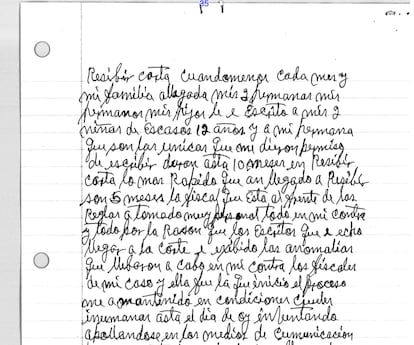 25
Resibir carta cuandomenos cada mes y
mi familia allegada mis 2 hermanas mis
hermanos mis hijos le e Escrito a mis 2
niñas de Escasos 12 años y a mi hermana
que son las unicas que mi dieron permiso
de escribir duran asta 10 meses en Resibir
carta lo mas Rapido que an llegado a Resibir
son 5 meses la fiscal que Esta al frente de las
Reglas a tomado muy personal todo en mi contra
y todo por la Rason que los Escritos que e echo
llegar a la corte e exibido las anomalias
que llebaron a cabo en mi contra los fiscales
de mi caso y ella fue la que inicio el proceso
me a mantenido en condiciones crueles
inumanas asta el dia de oy intentando
apollandose en los medios de comunicación